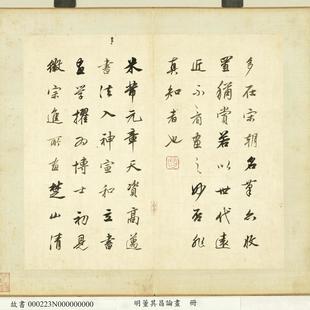 多在宋朝名筆亦收
置猶賞若以世代遠
近不看畫之妙否非
真知者也
米芾元章天資高邁
書法入神宣和立書
畫學擢為博士初見
徽宗進所畫楚山清
故書 000223N000000000
明董其昌論畫 冊